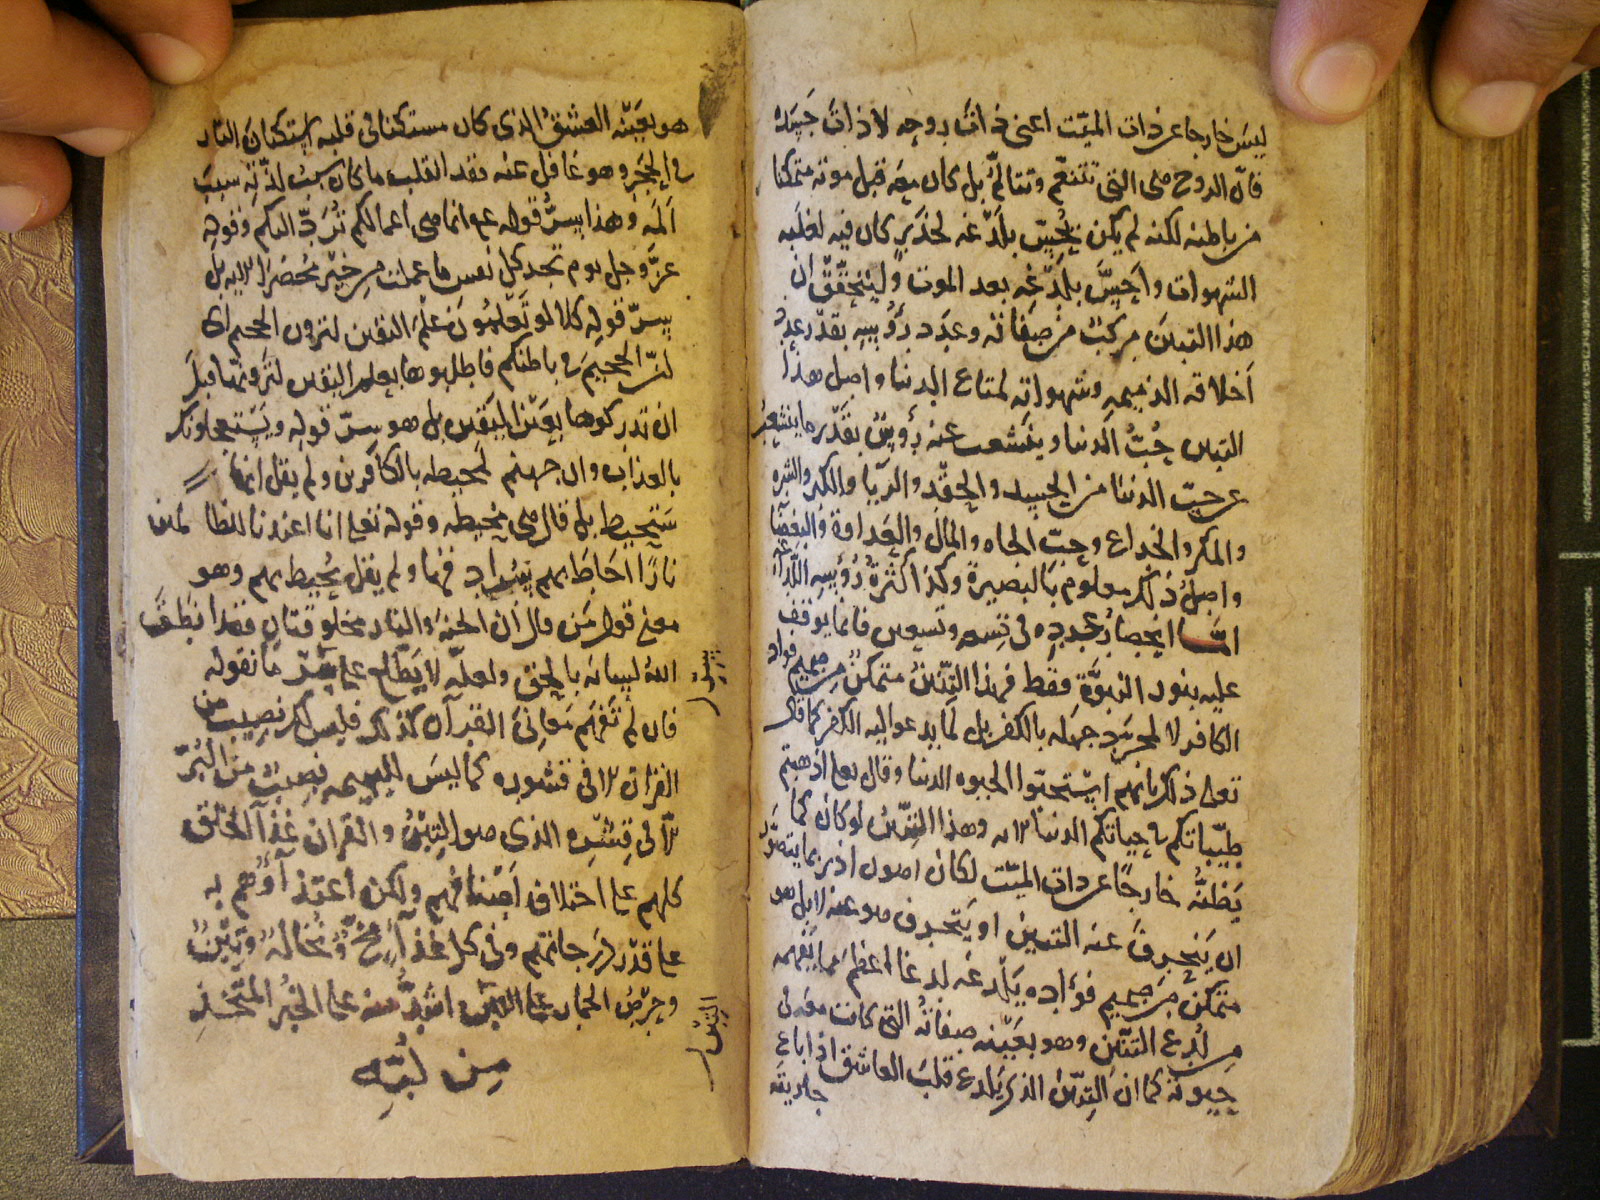 ليس خارجا عن ذات الميت اعنى ذات روحه لا ذات جسده
فان الروح هى التى تتنعم وتتالم بل كان معه قبل موته متمكنا
من باطنه لكنه لم يكن يحس بلدغه لخدر كان فيه لغلبه
الشهوات واحس بلدغه بعد الموت وليتحقق ان
هذا التنين مركب من صفاته وعدد رؤسه بقدر عدد
اخلاقه الذميمه وشهواته لمتاع الدنيا واصل هذا
التنين حب الدنيا ويتشعب عنه رؤس بقدر ما يتشعب
عن حب الدنيا من الحسد والحقد والريا والكبر والشره
والمكر والخداع وحب الجاه والمال والعداوة والبغضا
واصل ذلك معلوم بالبصيرة وكذا كثرة رؤسه اللداغه
اما انحصار عدده فى تسعه وتسعين فانما يوقف
عليه بنور النبوة فقط فهذا التنين متمكن من صميم فواد
الكافر لا لمجرد جهله بالكفر بل لما يدعو اليه الكفر كما قال
تعلى ذلك بانهم استحبوا الحيوه الدنيا وقال تعلى اذهبتم
طيباتكم فى حياتكم الدنيا الايه وهذا التنين لو كان كما
يظنه خارجا عن ذات الميت لكان اهون اذ ربما يتصور
ان ينحرف عنه التنين او ينحرف هو عنه لا بل هو
متمكن من صميم فؤاده يلدغه لدغا اعظم مما يفهمه
من لدغ التنين وهو بعينه صفاته التى كانت معه فى
حيوته كما ان التنين الذى يلدغ قلب العاشق اذا باع
جاريته
هو بعينه العشق الذى كان مستكنا فى قلبه استكنان النار
فى الحجر وهو غافل عنه فقد انقلب ما كان سبب لذته سبب
المه وهذا سر قوله عم انما هى اعمالكم ترد اليكم وقوله
عز وجل يوم تجد كل نفس ما عملت من خير محضرا الايه بل
سر قوله كلا لو تعلمون علم اليقين لترون الجحيم اى
ان الجحيم فى باطنكم فاطلبوها بعلم اليقين لترونها قبل
ان تدركوها بعين اليقين بل هو سر قوله ويستعجلونك
بالعذاب وان جهنم لمحيطه بالكافرين ولم يقل انها
ستحيط بل قال هى محيطه وقوله تعلى انا اعتدنا للظا لمين
نارا احاط بهم سرادقها ولم يقل يحيط بهم وهو
معنى قول من قال ان الجنه والنار مخلوقتان فقد انطق
الله لسانه بالحق ولعله لا يطلع على سر ما نقوله
فان لم تفهم معانى القرآن كذلك فليس لك نصيب من
القران الا فى قشوره كما ليس للبهيمه نصيب من البر
الا فى قشره الذى هو التبن والقران غذآ الخلق
كلهم على اختلاف اصنافهم ولكن اغتذآؤهم به
على قدر درجاتهم وفى كل غذآ مخ ونخالة وتبن
وحرص الحمار على التبن اشد منه على الخبز المتخذ
من لبه
التبن